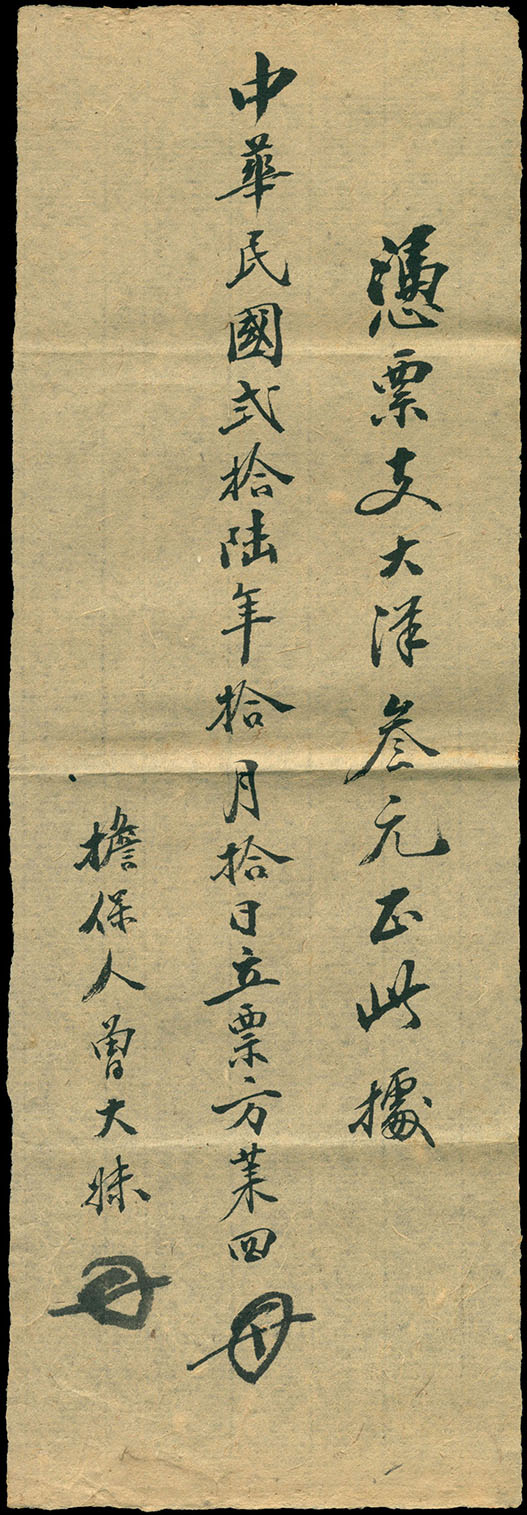 憑票支大洋叁元正此據
中華民國弍拾陸年拾月拾日立票方業四
擔保人曾大妹